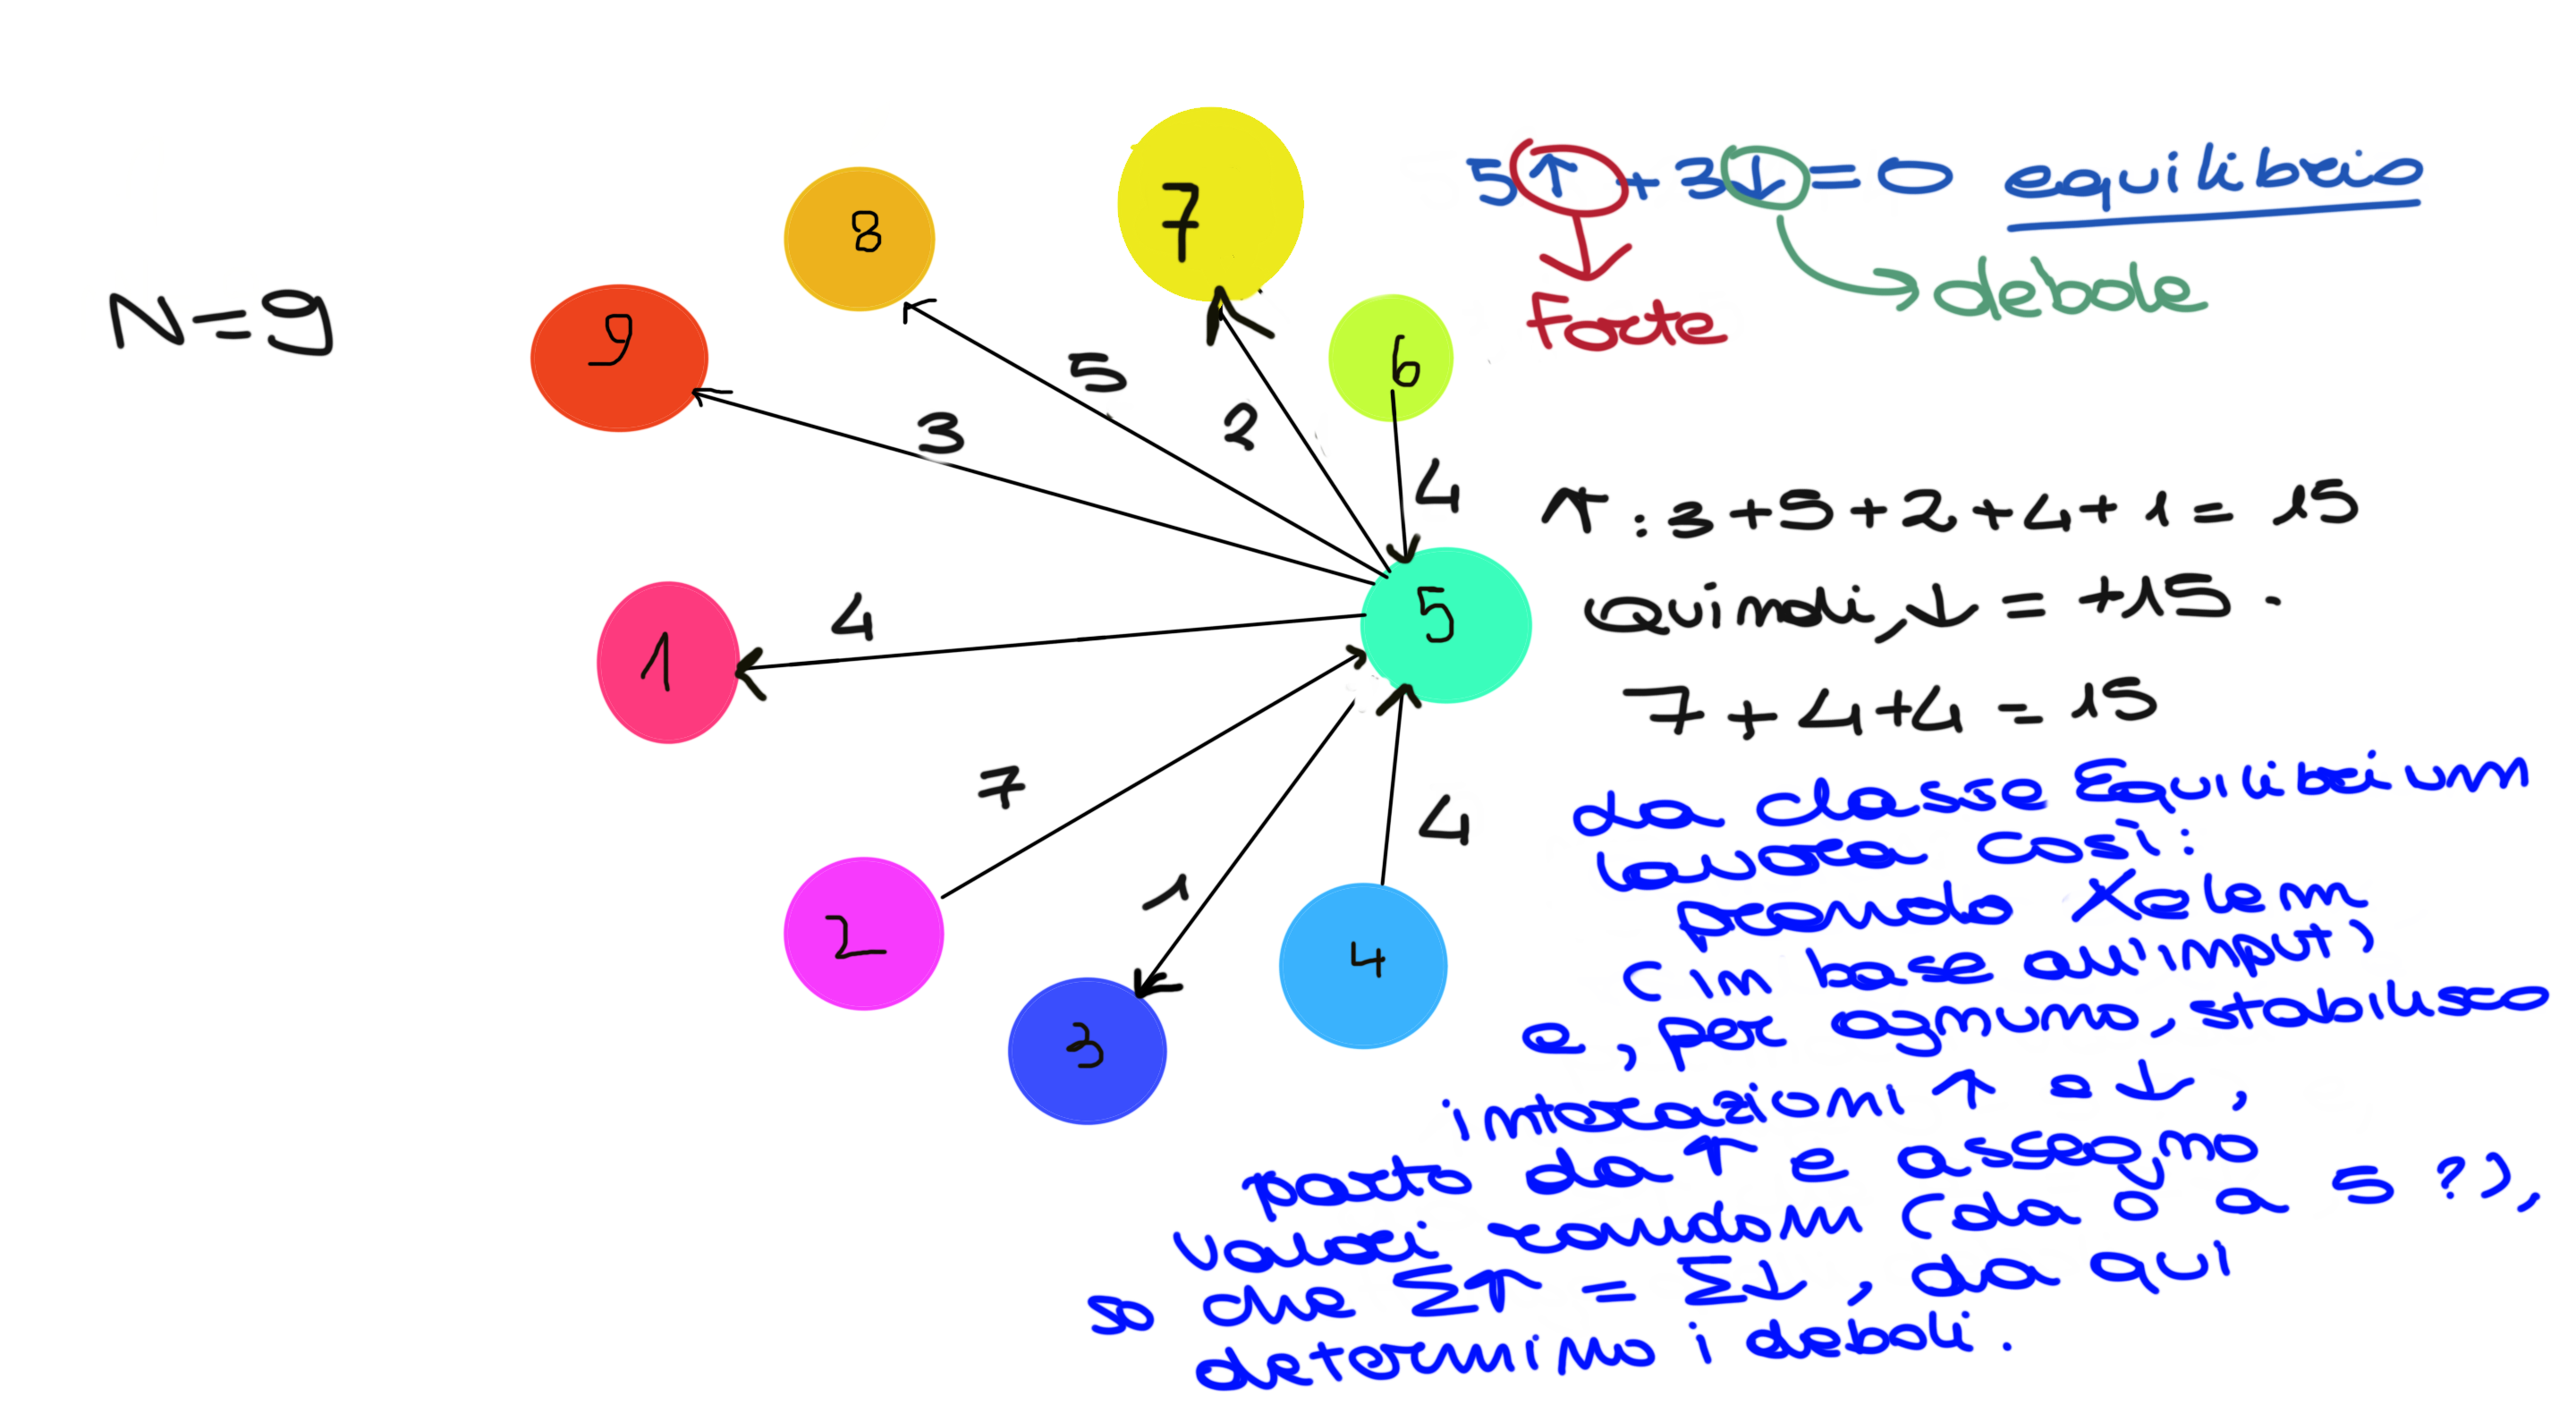 5↑ + 3↓ = 0 equilibrio
Forte
debole
N=9
9
8
7
6
5
4
3
2
1
3
5
2
4
4
7
1
4
↑: 3+5+2+4+1 = 15
Quindi, ↓ = +15.
7+4+4 = 15
La classe Equilibrium
lavora così:
prendo X elem
(in base all'input)
e, per ognuno, stabilisco
interazioni ↑ e ↓,
parto da ↑ e assegno
valori random (da 0 a 5 ?),
so che Σ↑ = Σ↓, da qui
determino i deboli.